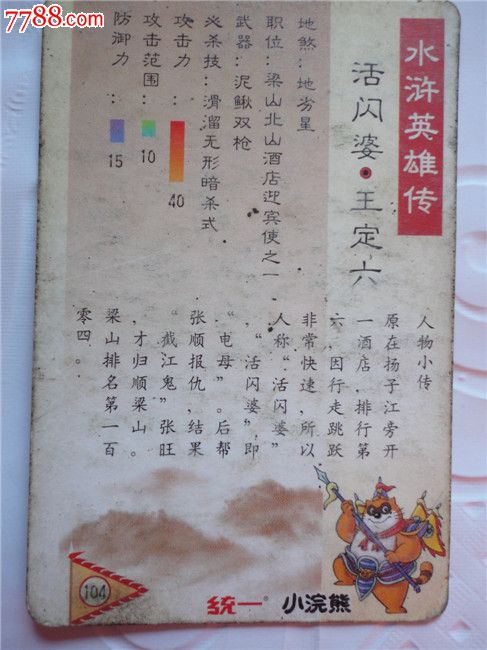 7788.com
水浒英雄传
活闪婆·王定六
地煞：地劣星
职位：梁山北山酒店迎宾使之一
武器：泥鳅双枪
必杀技：滑溜无形暗杀式
攻击力：40
攻击范围：10
防御力：15
人物小传
原在扬子江旁开
一酒店，排行第
六，因行走跳跃
非常快速，所以
人称“活闪婆”
，“活闪婆”，即
“电母”。后帮
张顺报仇，结果
“截江鬼”张旺
，才归顺梁山。
梁山排名第一百
零四。
104
统一 小浣熊